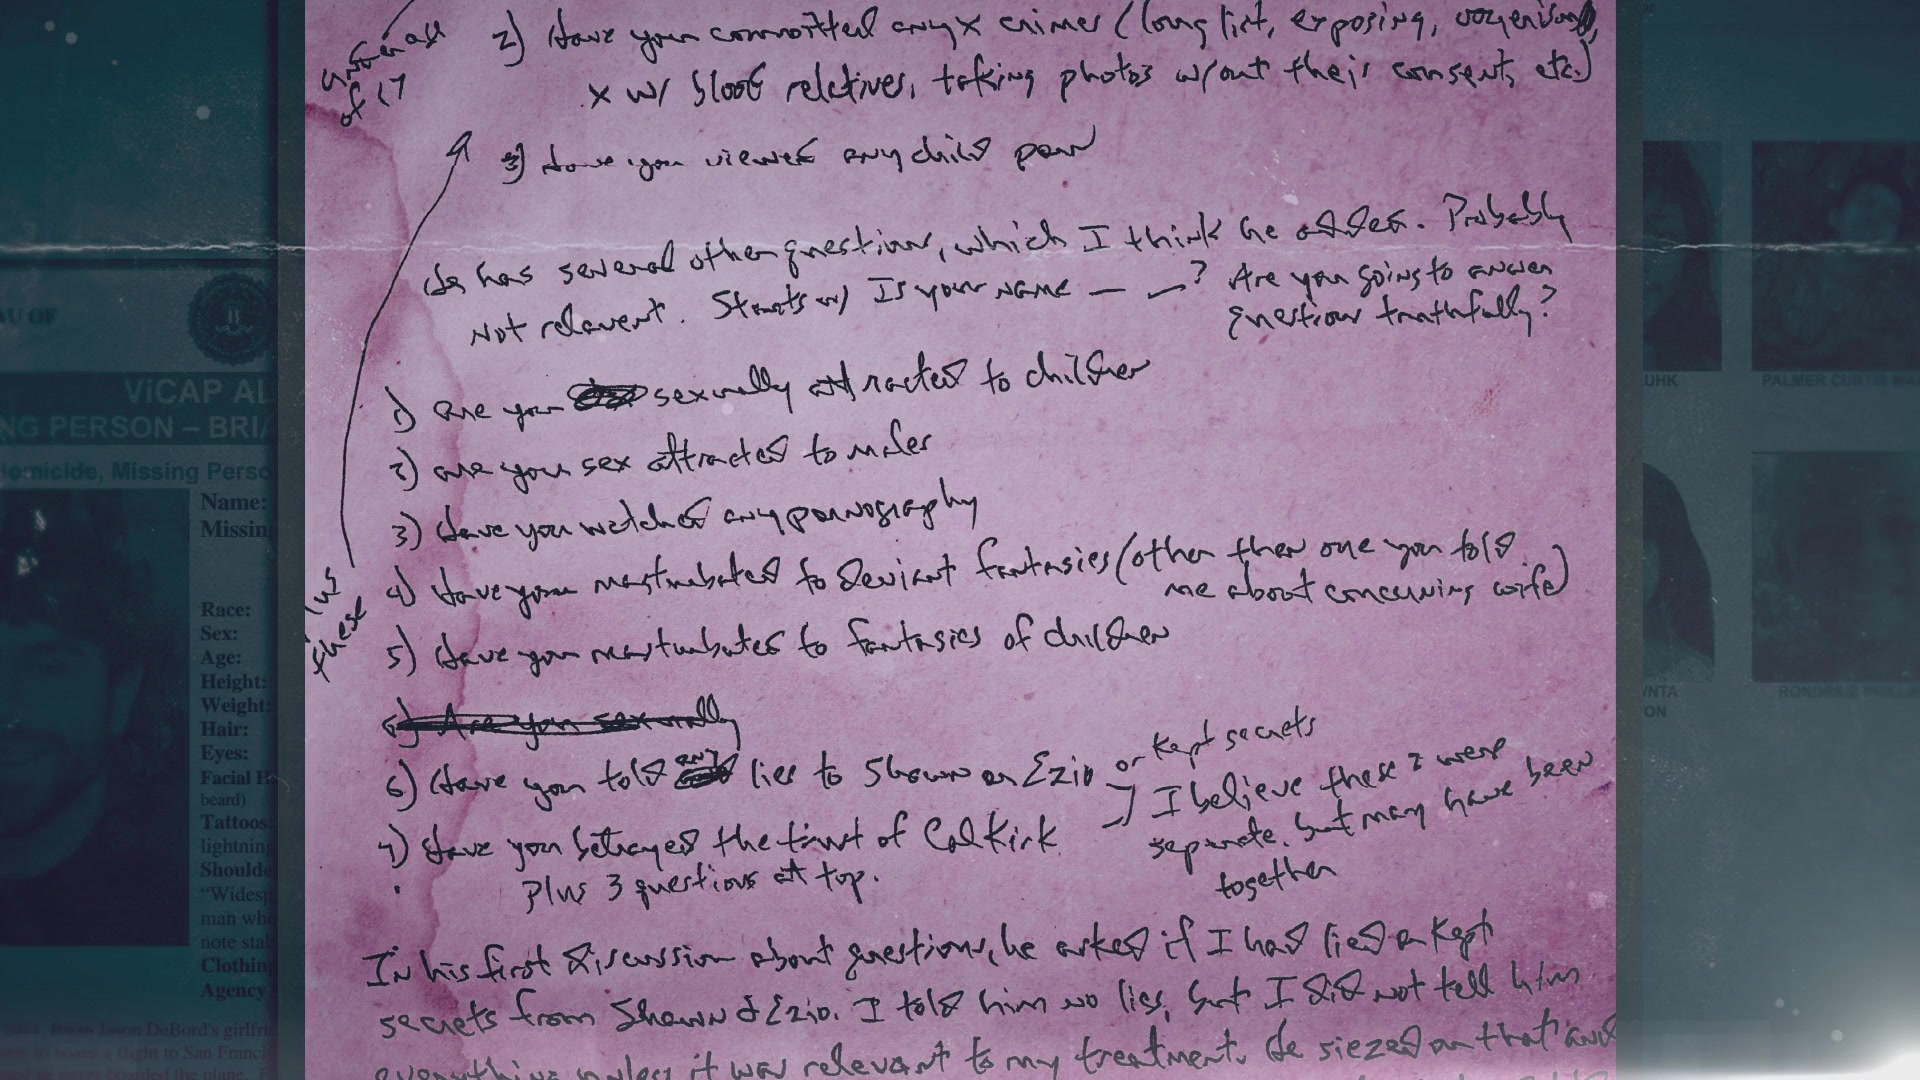 2) Have you committed any x crimes (long list, exposing, voyerism,
under age
of 17
x w/ blood relatives, taking photos w/out their consent, etc.)
3) Have you viewed any child porn
He has several other questions, which I think he added. Probably
not relavent. Starts w/ Is your name — —? Are you going to answer
questions truthfully?
1) are you sexually attracted to children
2) are you sex attracted to males
3) Have you watched any pornography
4) Have you masturbated to deviant fantasies (other then one you told
me about concerning wife)
plus
these
5) Have you masturbated to fantasies of children
6) Are you sexually
6) Have you told any lies to Shawn or Ezio or kept secrets
7) Have you betrayed the trust of Cal Kirk
I believe these 2 were
separate, but may have been
together
Plus 3 questions at top.
In his first discussion about questions, he asked if I had lied or kept
secrets from Shawn & Ezio. I told him no lies, but I did not tell him
everything unless it was relevant to my treatment. He siezed on that and
AU OF
ViCAP AL
NG PERSON – BRI
Homicide, Missing Perso
Name:
Missin
Race:
Sex:
Age:
Height:
Weight:
Hair:
Eyes:
Facial H
beard)
Tattoos:
lightning
Shoulde
"Widesp
man wh
note stat
Clothin
Agency
Jason DeBord's girlfri
to board a flight to San Franci
never boarded the plane.
UHK
PALMER CURTIS MA
NTA
ON